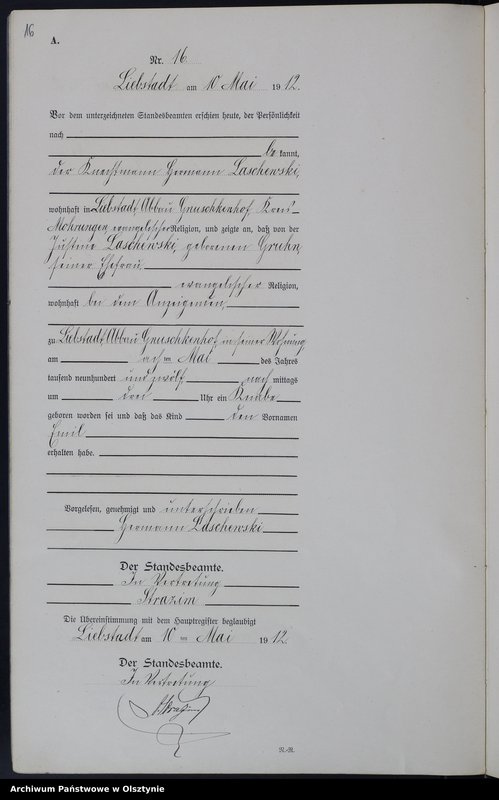 16
A.
Nr. 16
Liebstadt am 10 Mai 1912.
Vor dem unterzeichneten Standesbeamten erschien heute, der Persönlichkeit
nach
be kannt,
der Knechtmann Hermann Laschewski,
wohnhaft in Liebstadt, Abbau Gnuschkenhof Kreis
Mohrungen, evangelischer Religion, und zeigte an, daß von der
Justine Laschewski, geborenen Gruhn,
seiner Ehefrau,
evangelischer Religion,
wohnhaft bei dem Anzeigenden
zu Liebstadt, Abbau Gnuschkenhof in seiner Wohnung
am achten Mai des Jahres
tausend neunhundert und zwölf nach mittags
um drei Uhr ein Knabe
geboren worden sei und daß das Kind den Vornamen
Emil
erhalten habe.
Vorgelesen, genehmigt und unterschrieben
Hermann Laschewski
Der Standesbeamte.
In Vertretung
Strazim
Die Übereinstimmung mit dem Hauptregister beglaubigt
Liebstadt am 10 ten Mai 1912.
Der Standesbeamte.
In Vertretung
Archiwum Państwowe w Olsztynie